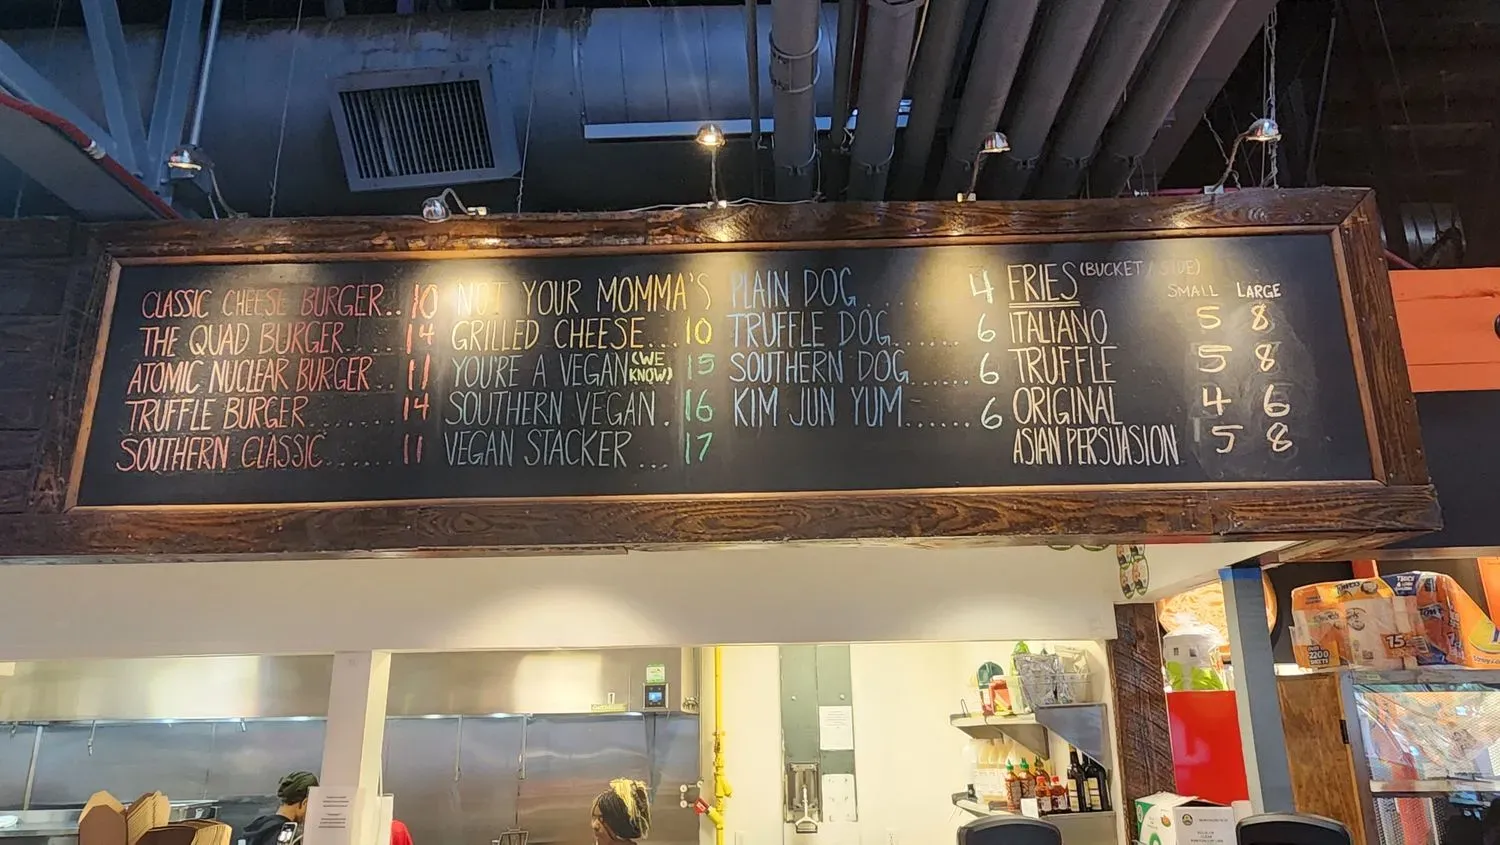 CLASSIC CHEESE BURGER.. 10
THE QUAD BURGER..... 14
ATOMIC NUCLEAR BURGER.. 11
TRUFFLE BURGER....... 14
SOUTHERN CLASSIC...... 11
NOT YOUR MOMMA'S
GRILLED CHEESE... 10
YOU'RE A VEGAN (WE KNOW) 15
SOUTHERN VEGAN. 16
VEGAN STACKER ... 17
PLAIN DOG........ 4
TRUFFLE DOG...... 6
SOUTHERN DOG...... 6
KIM JUN YUM...... 6
FRIES (BUCKET / SIDE)
SMALL LARGE
ITALIANO 5 8
TRUFFLE 5 8
ORIGINAL 4 6
ASIAN PERSUASION 5 8
OVER
2200
SHEETS
15